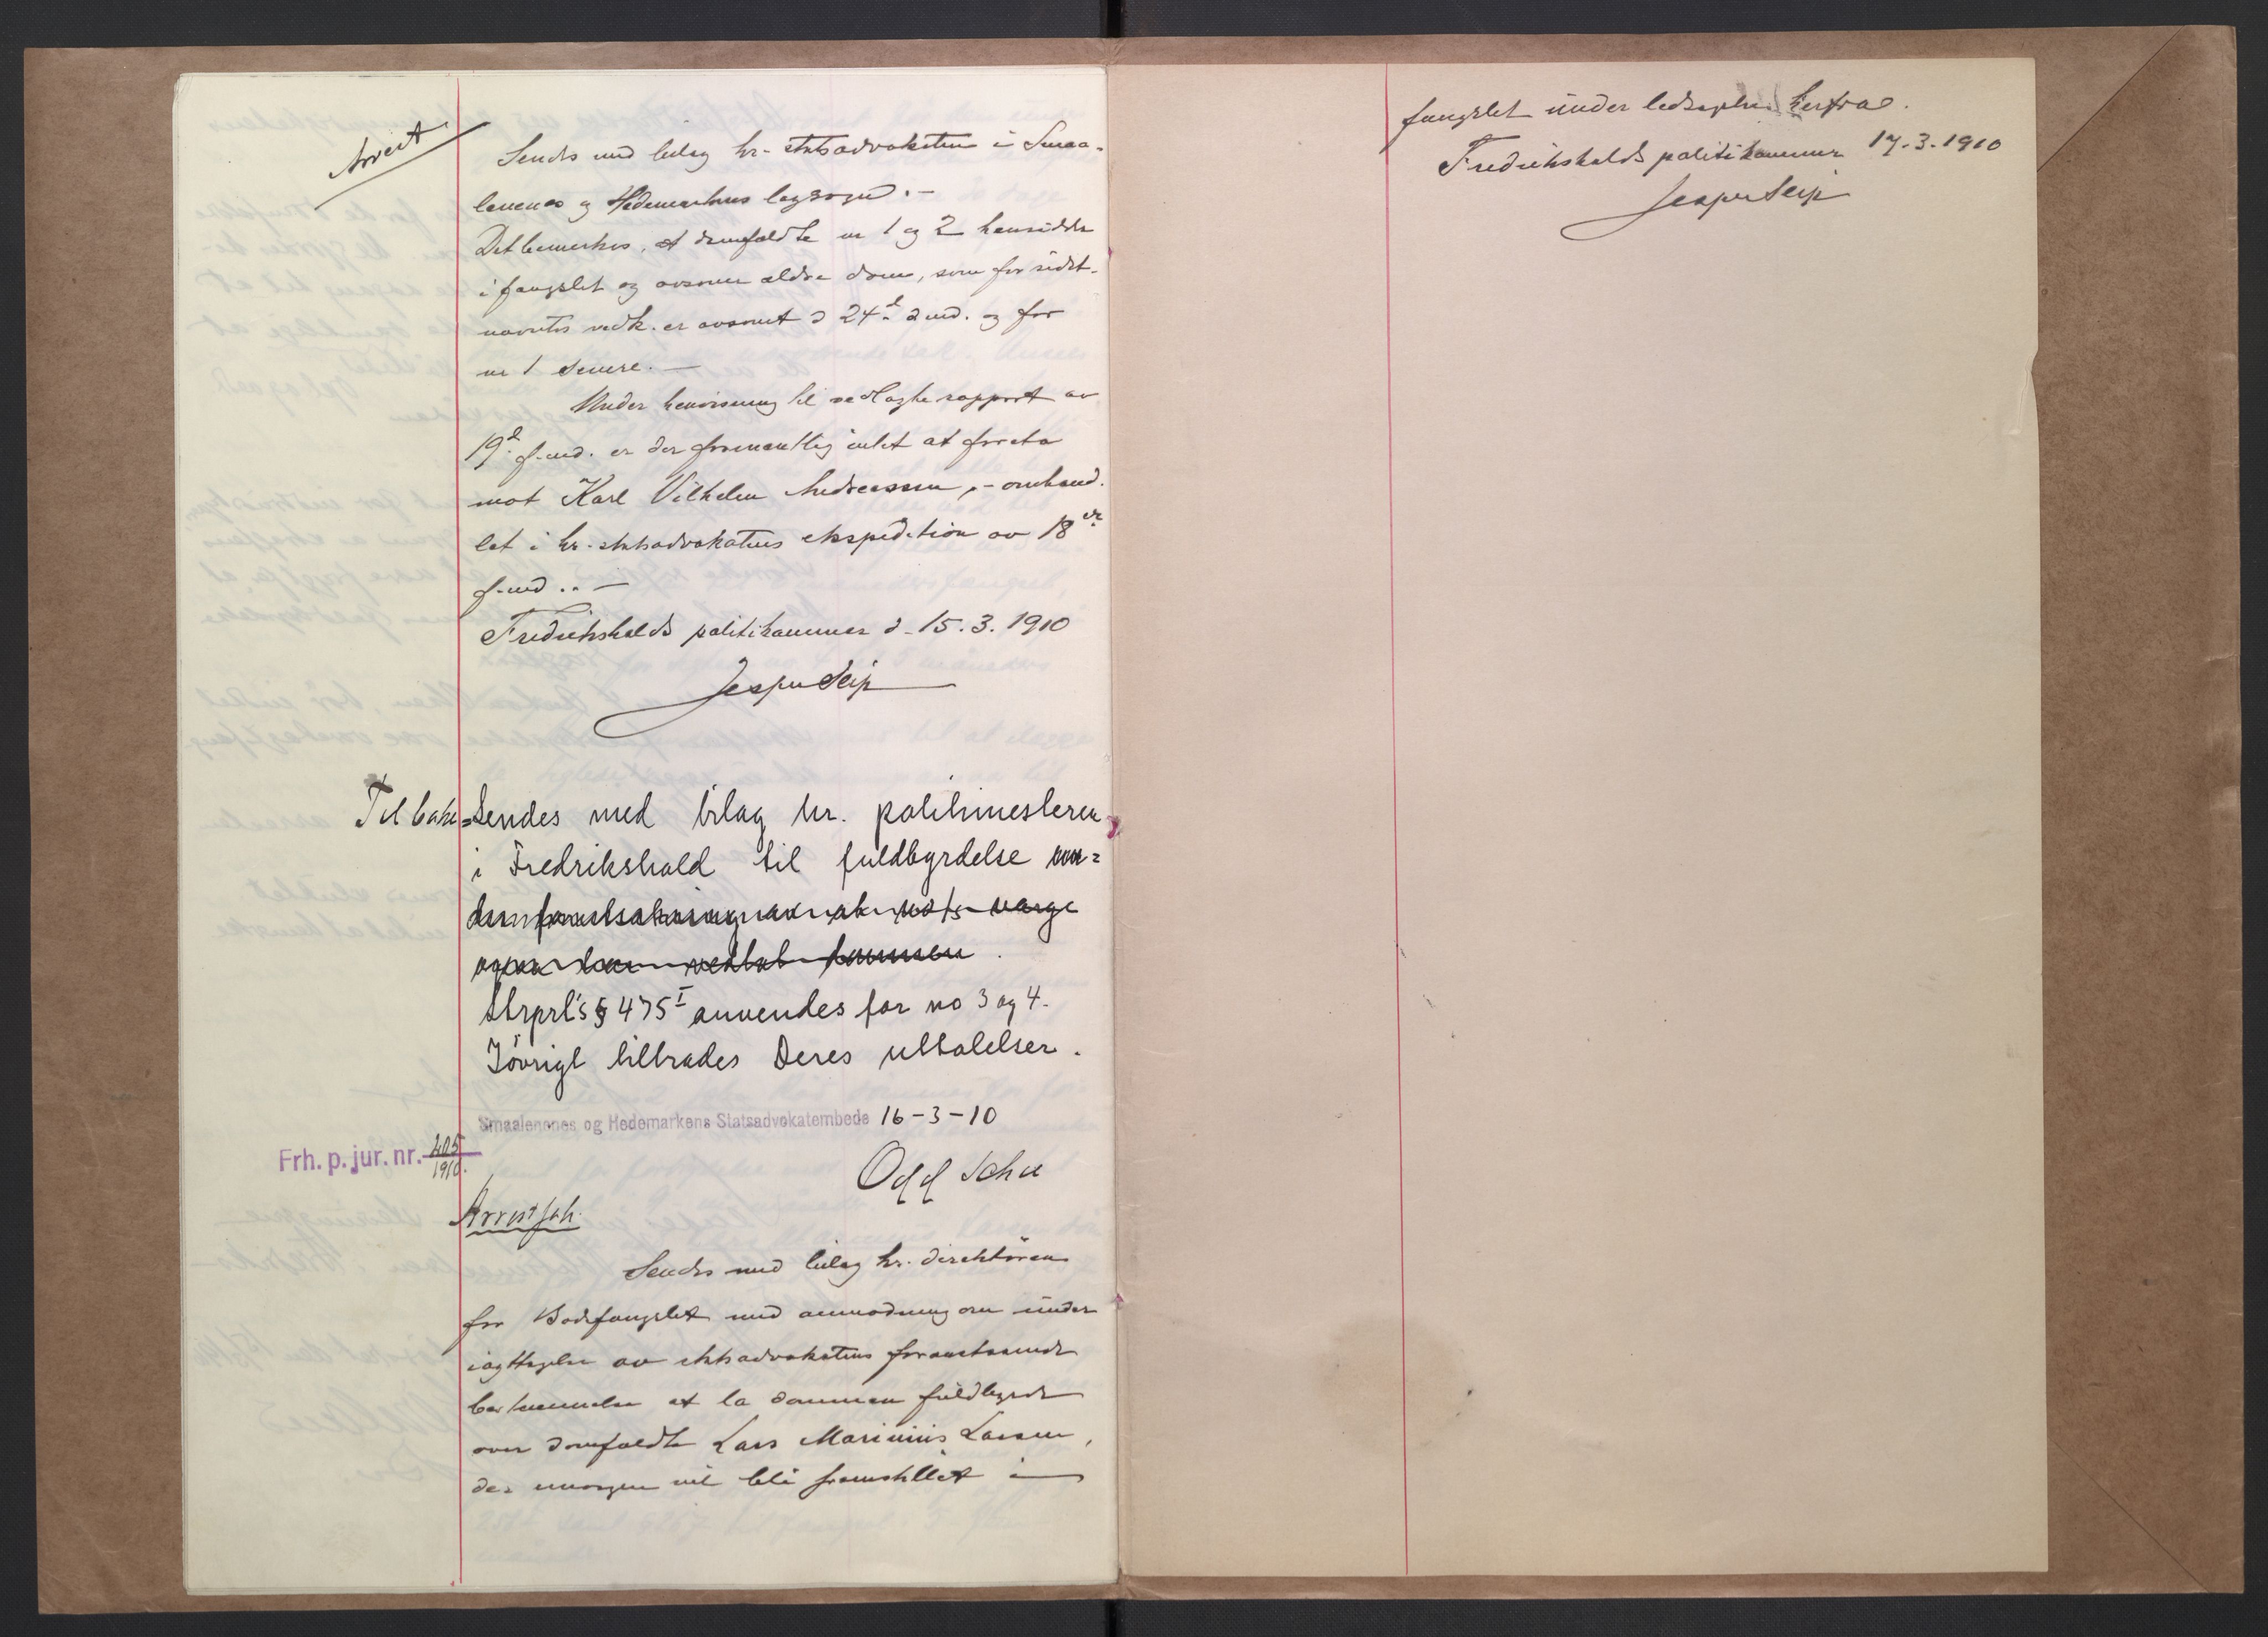 Arrest
Sendes med bilag hr. statsadvokaten i Smaa-
lenenes og Hedemarkens lagsogn. –
Det bemerkes, at domfældte nr 1 og 2 hensidder
i fængslet og avsoner ældre dom, som for sidst-
nævntes vedk. er avsonet d 24d. d md. og for
nr 1 senere. –
Under henvisning til vedlagte rapport av
19d. f. md. er der formentlig intet at foreta
mot Karl Vilhelm Andreassen, – omhand-
let i hr. statsadvokatens ekspedition av 18de
f. md.. –
Fredrikshalds politikammer d. 15.3.1910
Jesper Seip
Tilbake=sendes med bilag hr. politimesteren
i Fredrikshald til fuldbyrdelse
Strprl's § 475 I anvendes for no 3 og 4.
Iøvrigt tiltrædes Deres uttalelser.
Smaalenenes og Hedemarkens Statsadvokatembede 16-3-10
Frh. p. jur. nr. 405/1910.
Odd
Arrestsak.
Sendes med bilag hr. direktøren
for Bodsfængslet med anmodning om under
iagttagelse av statsadvokatens foranstaaende
bestemmelse at la dommen fuldbyrde
over domfældte Lars Marinius Larsen,
der imorgen vil bli fremstillet i
fængslet under ledsagelse herfra.
Fredrikshalds politikammer 17.3.1910
Jesper Seip